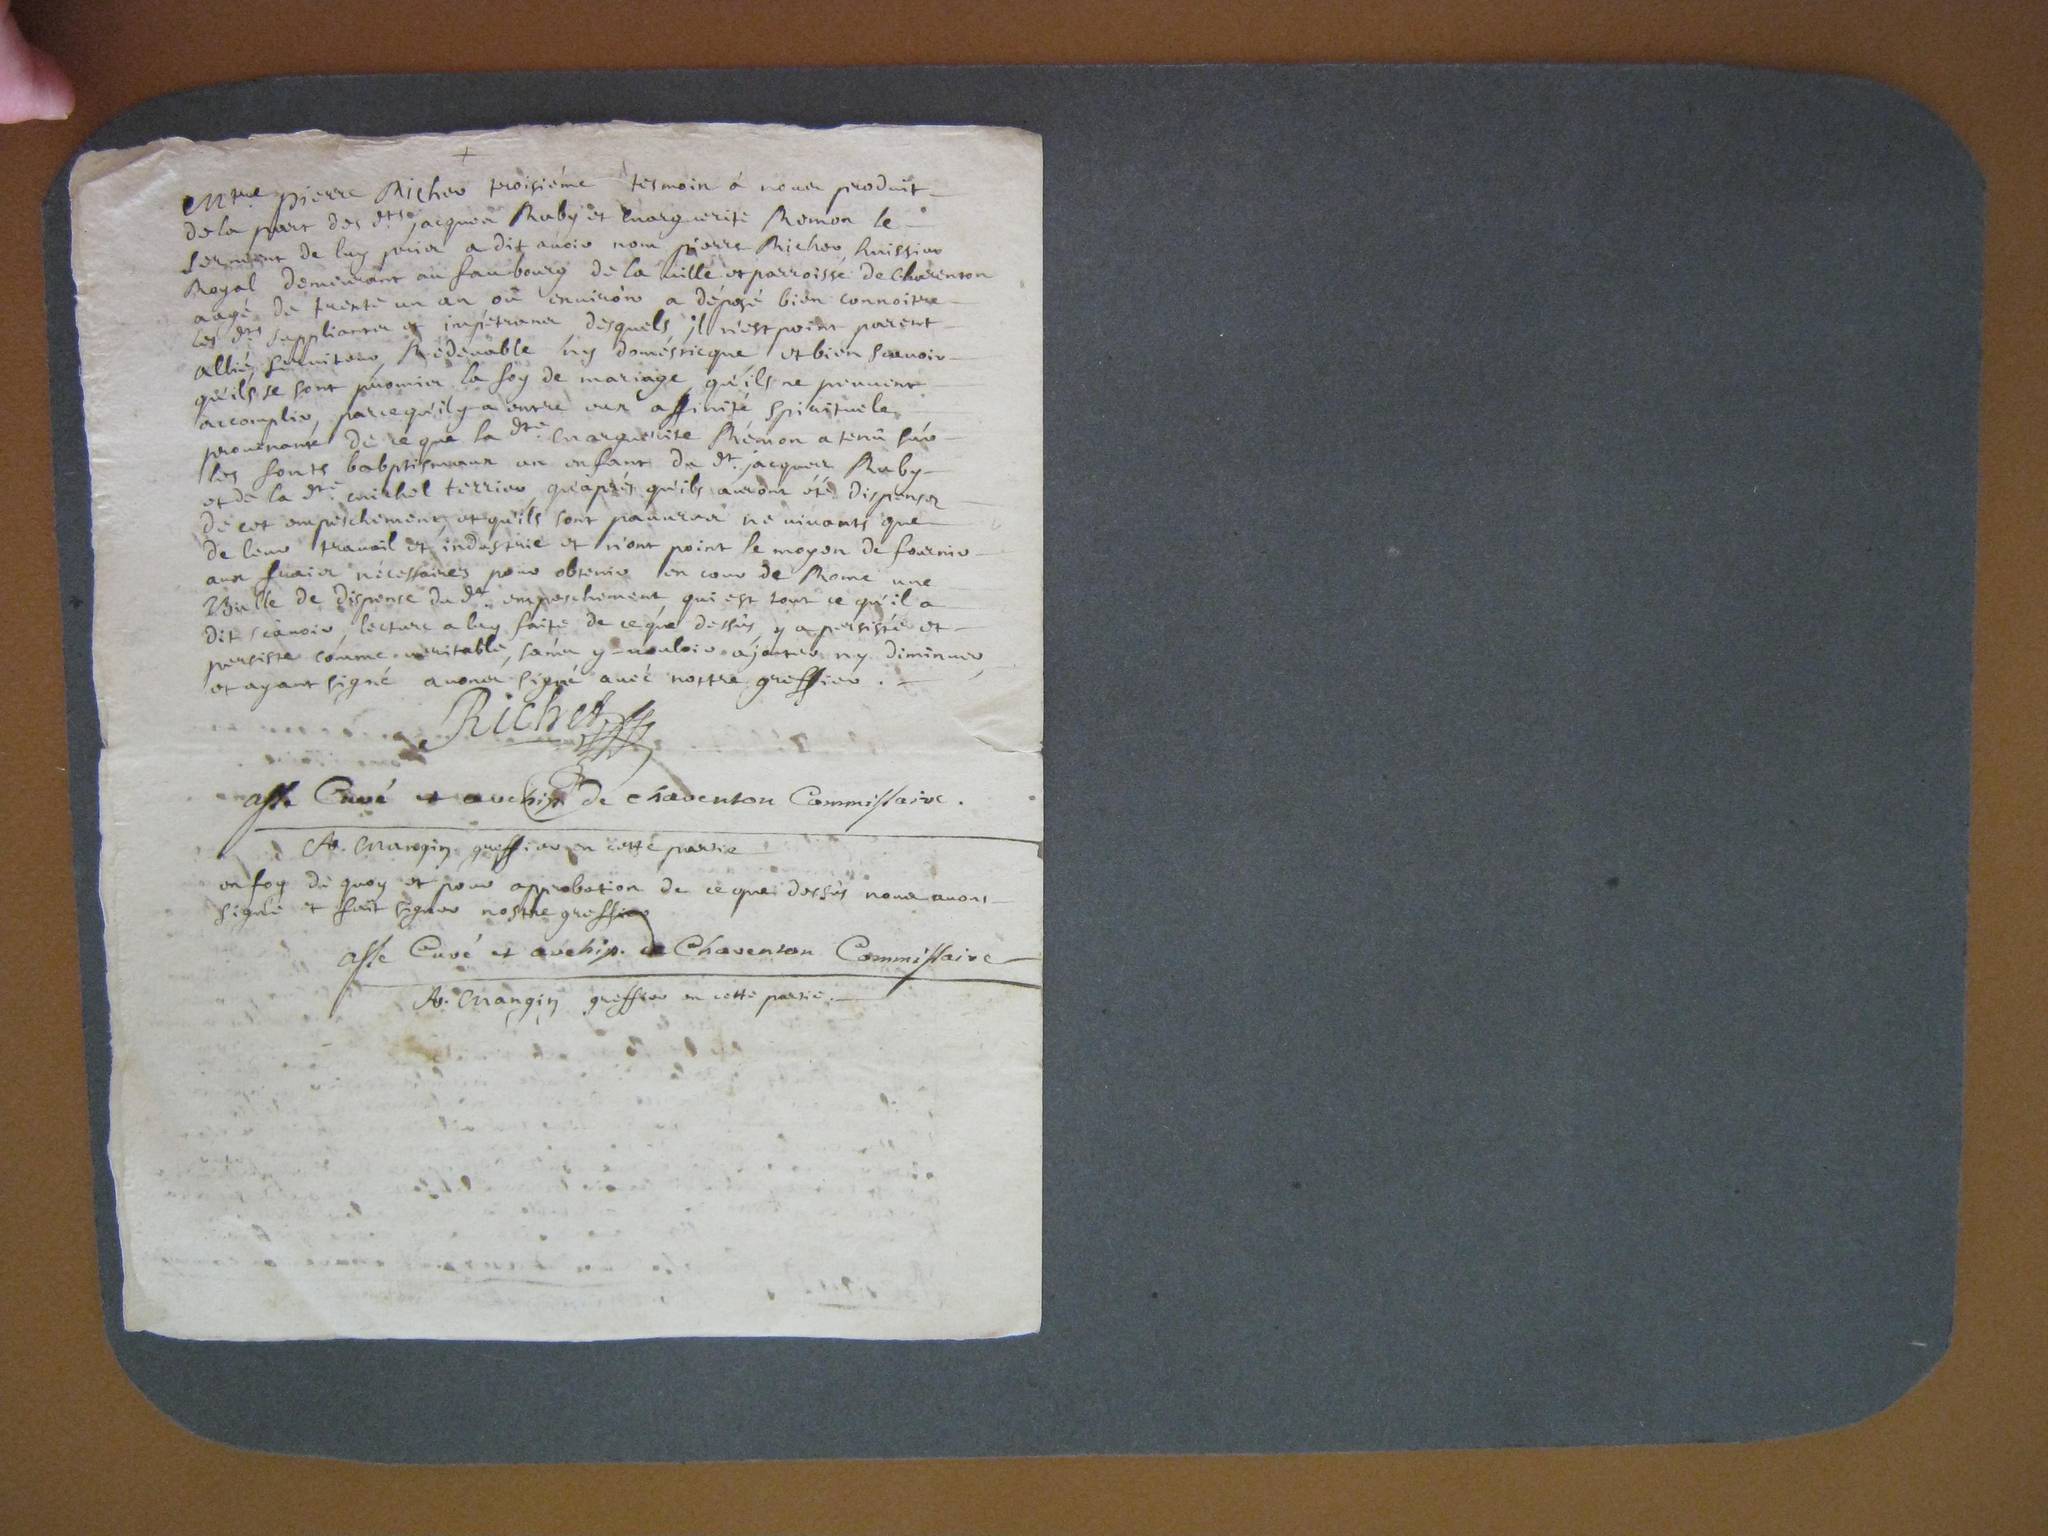 +
Mtre pierre Richer troisiéme tesmoin à nouz produit
de la part des dts jacques Raby et marguerite Remon le
serment de luy priez a dit avoir nom pierre Richer, huissier
Royal demeurant au faubourg de la ville et parroisse de Charenton
aagé de trente un an où environ a déposé bien connoitre
les dts supplianter et impétraner desquels il n'est point parent
allié, serviteur, Redevable ny doméstique et bien scavoir
qu'ils se sont promiez la foy de mariage, qu'ils ne peuvent
accomplir, parcequ'il y a entre eux affinité spirituele
provenante de ce que la dte marguerite Rémon a tenû sur
les fonts babptismaux un enfant du dt. jacques Raby
et de la dte michel terrier, qu'aprés qu'ils auront été dispensez
de cet empeschement, et qu'ils sont pauvres ne vivants que
de leur travail et industrie et n'ont point le moyen de fournir
aux fraiez nécessaires pour obtenir en cour de Rome une
Bulle de dispense du dt. empeschement, qui est tout ce qu'il a
dit scavoir, lecture a luy faite de ce que dessus, y a persisté et
persiste comme veritable, sans y vouloir ajouter ny diminuer,
et ayant signé avons signé avec nostre greffier.
Richer
asse Curé et archip. de charenton Commissaire.
A. mangin greffier en cette partie
en foy de quoy et pour approbation de ce que dessus nous avons
signé et fait signer nostre greffier
asse Curé et archip. de Charenton Commissaire
A. mangin greffier en cette partie.